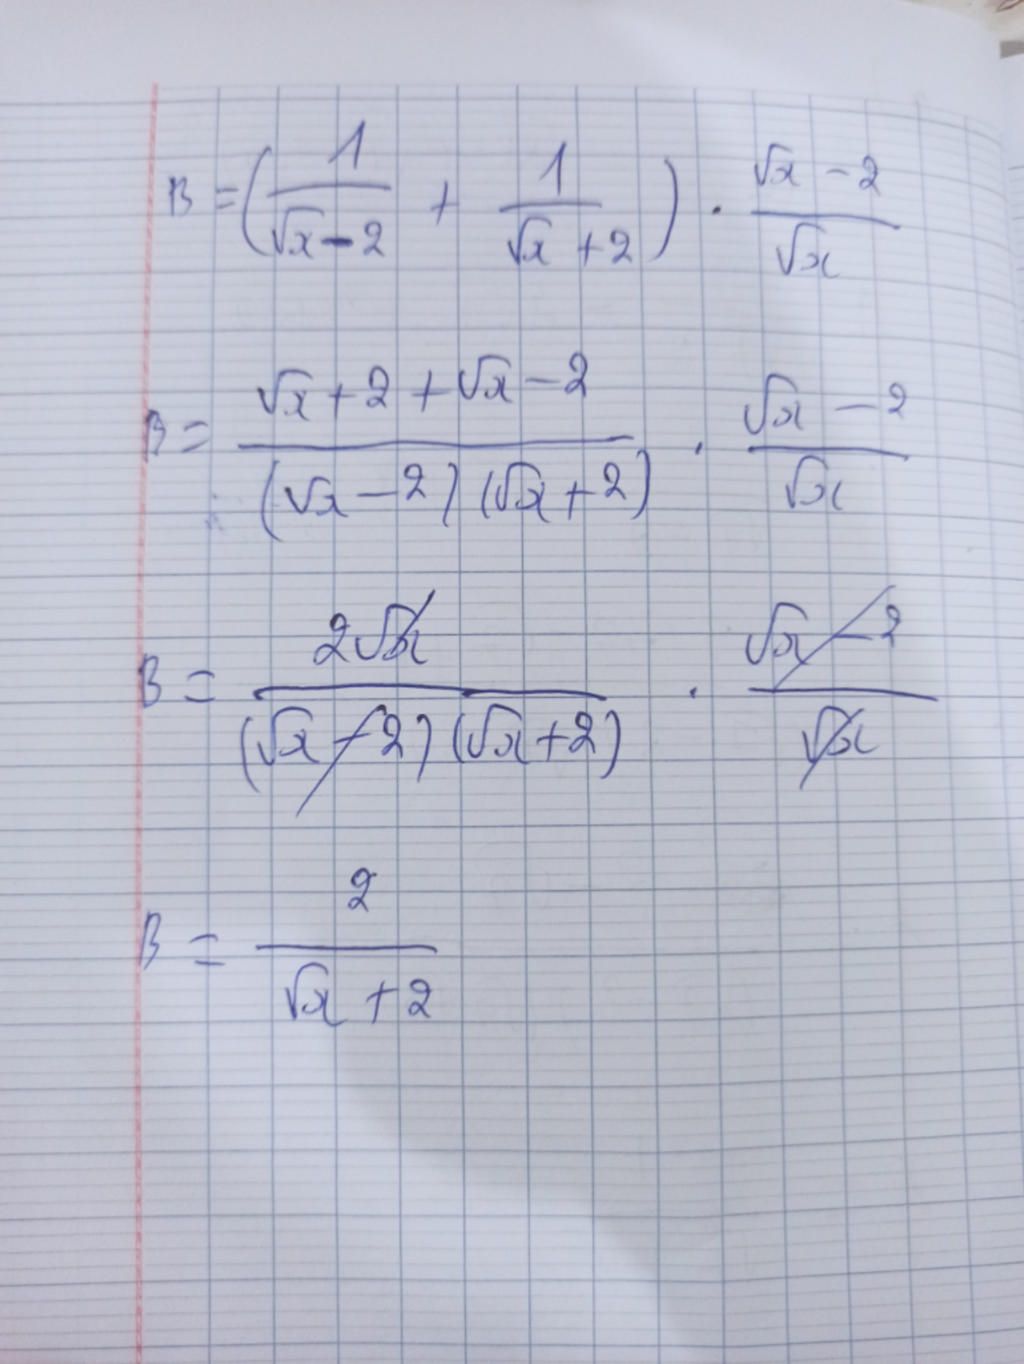 B = (1/(√x - 2) + 1/(√x + 2)) . (√x - 2)/√x
B = (√x + 2 + √x - 2)/((√x - 2)(√x + 2)) . (√x - 2)/√x
B = 2√x/((√x - 2)(√x + 2)) . (√x - 2)/√x
B = 2/(√x + 2)